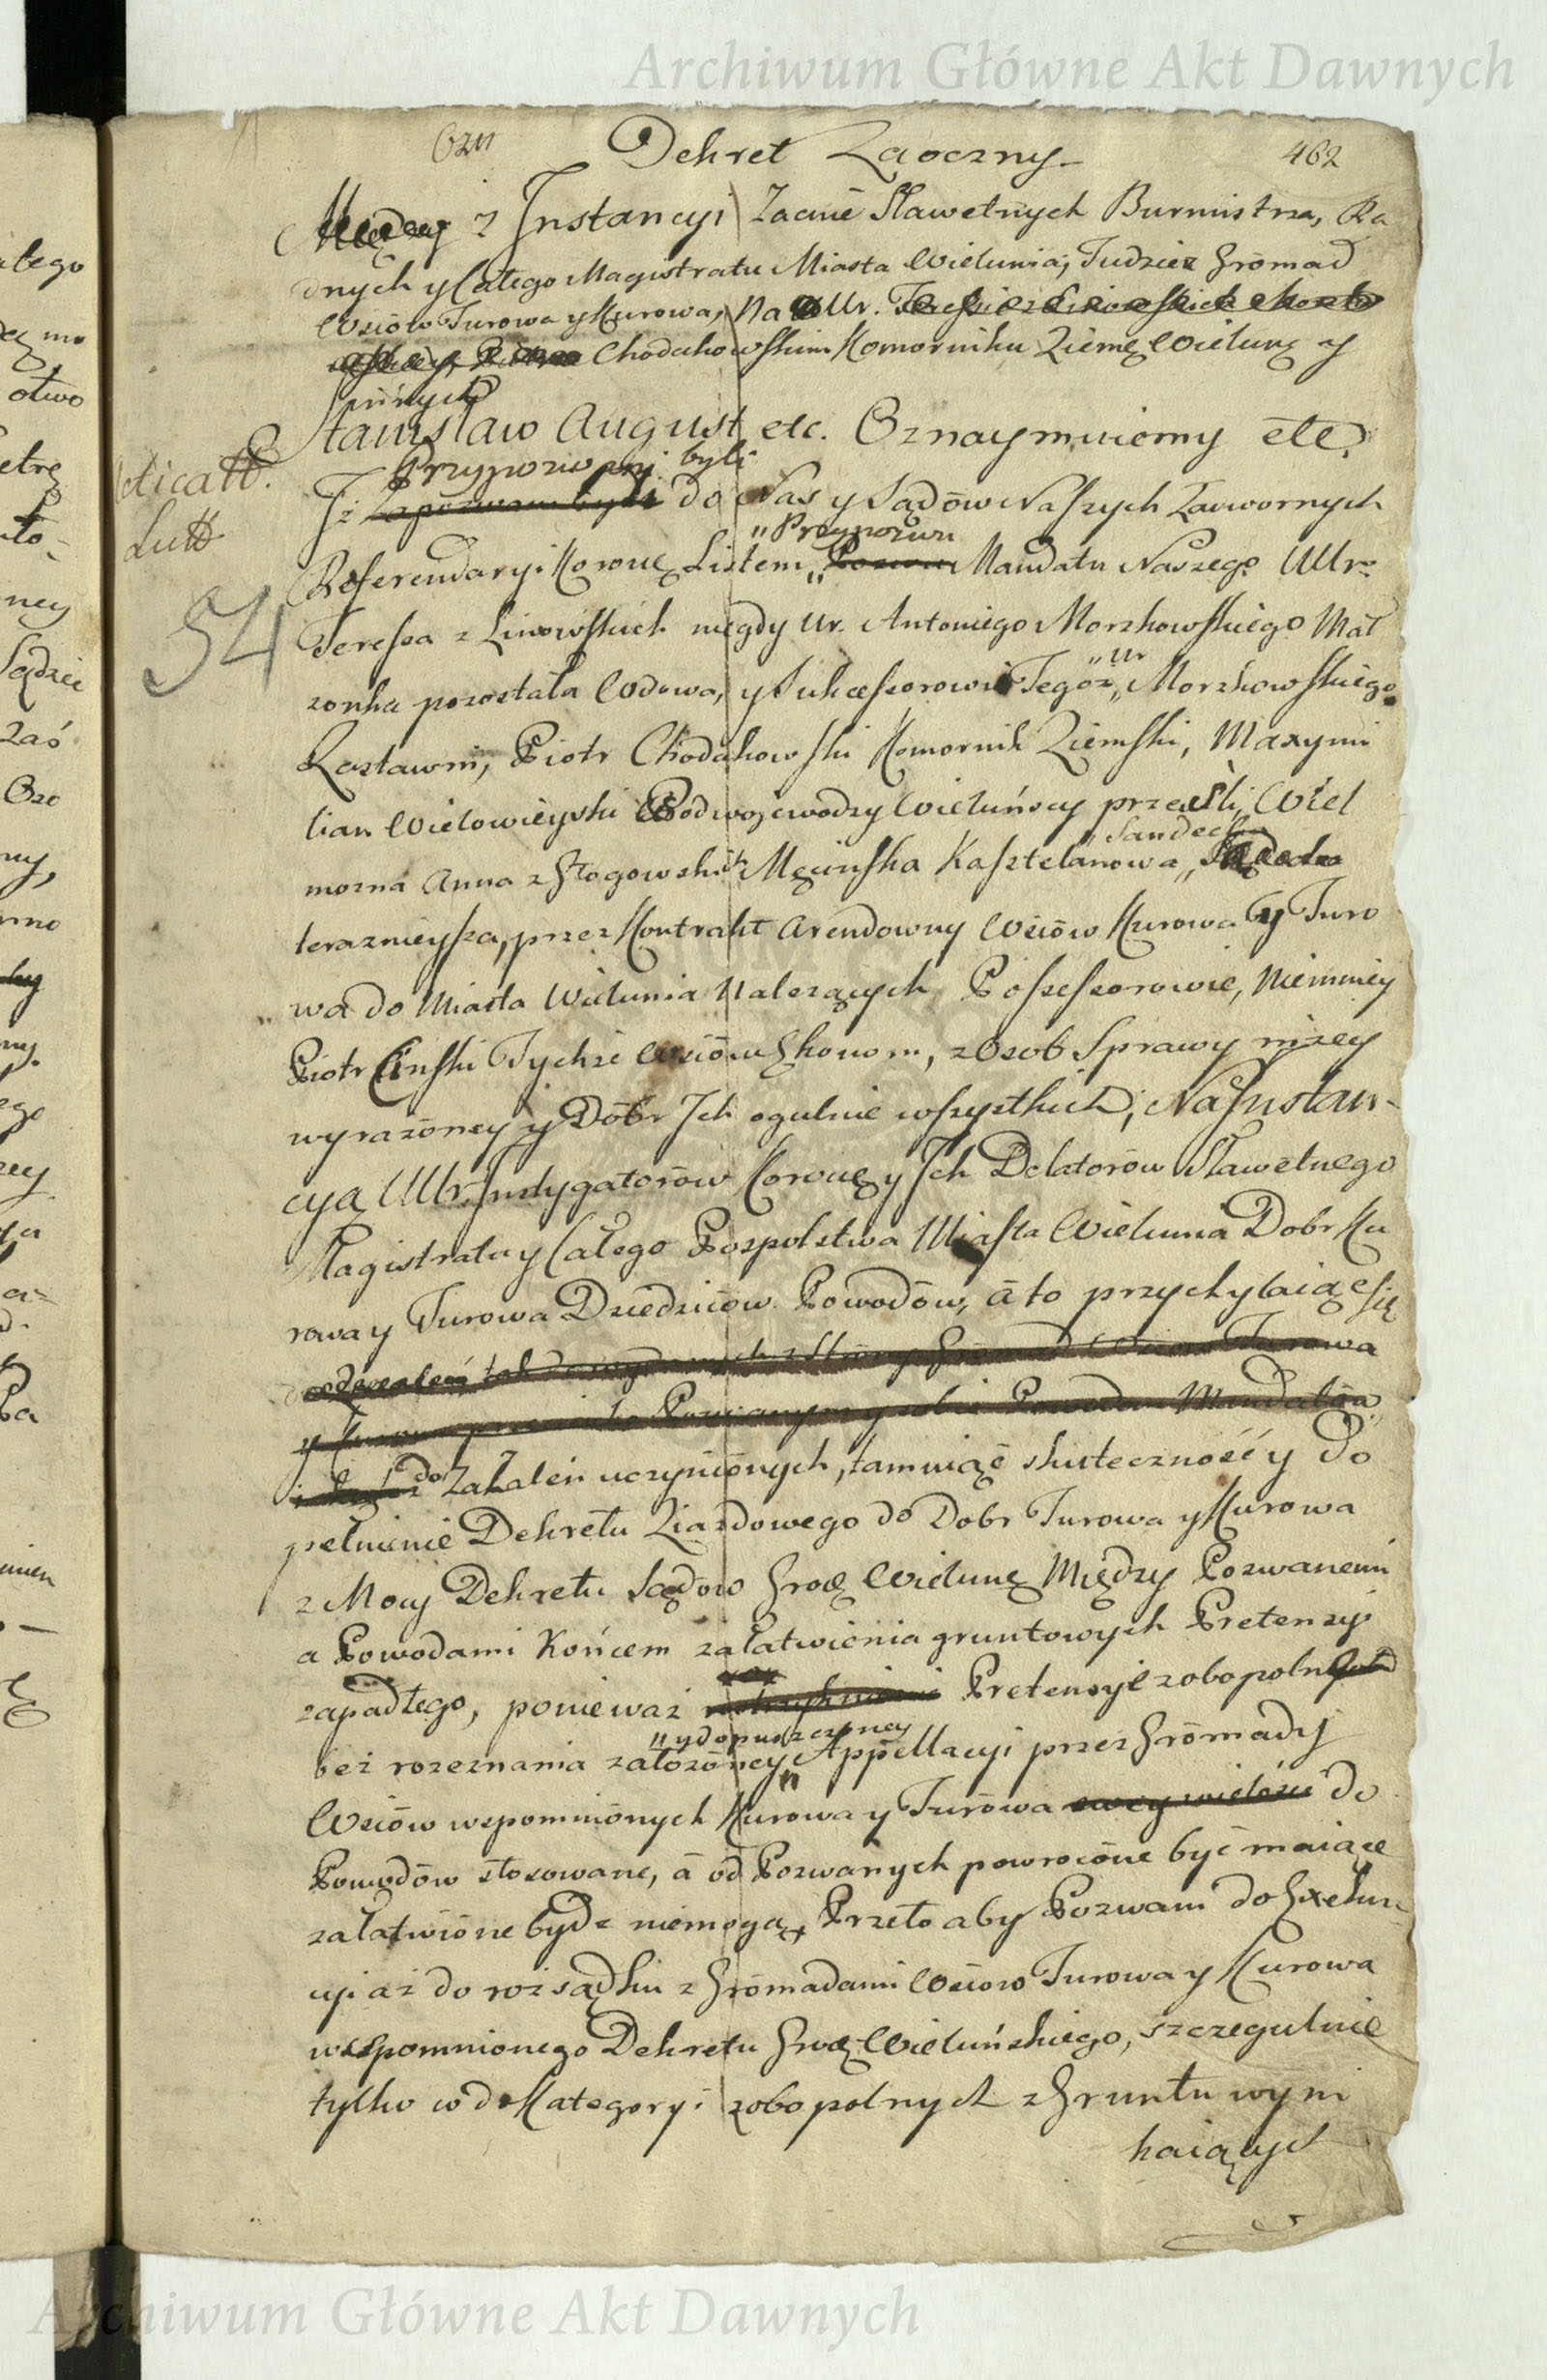 Archiwum Główne Akt Dawnych
Dekret Zaoczny
462
Między z Instancyi Zacnie Sławetnych Burmistrza, Ra
dnych y Całego Magistratu Miasta Wielunia, Tudzież Gromad
Wsiów Turowa y Kurowa, Na Ur.
Chodakowskim Komorniku Ziemę Wielunę y
innych
Stanisław August etc. Oznaymuiemy etc.
Przypozwani byli
Iż do Nas y Sądów Naszych Zadwornych
"Przypozwu
Referendaryi Koronę Listem " Pozwu Mandatu Naszego UUr:
Teressa z Linowskich niegdy Ur. Antoniego Morzkowskiego Mał
"Ur
zonka pozostała Wdowa, y Sukcessorowie Tegoż " Morzkowskiego
Zastawni, Piotr Chodakowski Komornik Ziemski, Maxymi
lian Wielowieyski Podwojewodzy Wieluńscy przeszli, Wiel
Sandecka
mozna Anna z Stogowskich Męcinska Kasztelanowa "
terazniejsza, przez Kontrakt Arendowny Wsiów Kurowa y Turo
wa do Miasta Wielunia Nalezących Possessorowie, Niemniey
Piotr Cinski Tychże Wsiów Ekonom, z Osob Sprawy niżey
wyrazoney y Dóbr Ich ogulnie wszystkich, Na Instan-
cyą UUr. Instygatorów Koronę y Ich Delatorów Sławetnego
Magistratu y Całego Pospolstwa Miasta Wielunia Dobr Ku
rowa y Turowa Dziedziców Powodów, á to przychylaiąc się
do Zakaleń uczynionych, tamuiąc skuteczność y Do
pełnienie Dekretu Ziazdowego do Dobr Turowa y Kurowa
z Mocy Dekretu Sądow Grodę Wielunę Między Pozwanemi
a Powodami Końcem załatwienia gruntowych Pretensyi
zapadłego, ponieważ Pretensye zobopolne
"y dopuszczoney
bez rozeznania założoney " Appellacyi przez Gromady
Wsiów wspomnionych Kurowa y Turowa do
Powodów stosowane, á od Pozwanych powrócone być maiące
załatwione bydz niemogą, Przeto aby Pozwani do Exeku
cyi aż do rozsądku z Gromadami Wsiow Turowa y Kurowa
wspomnionego Dekretu Grodę Wieluńskiego, szczegulnie
tylko co do Kategoryi zobopolnych z Gruntu wyni
kaiących
54
Archiwum Główne Akt Dawnych